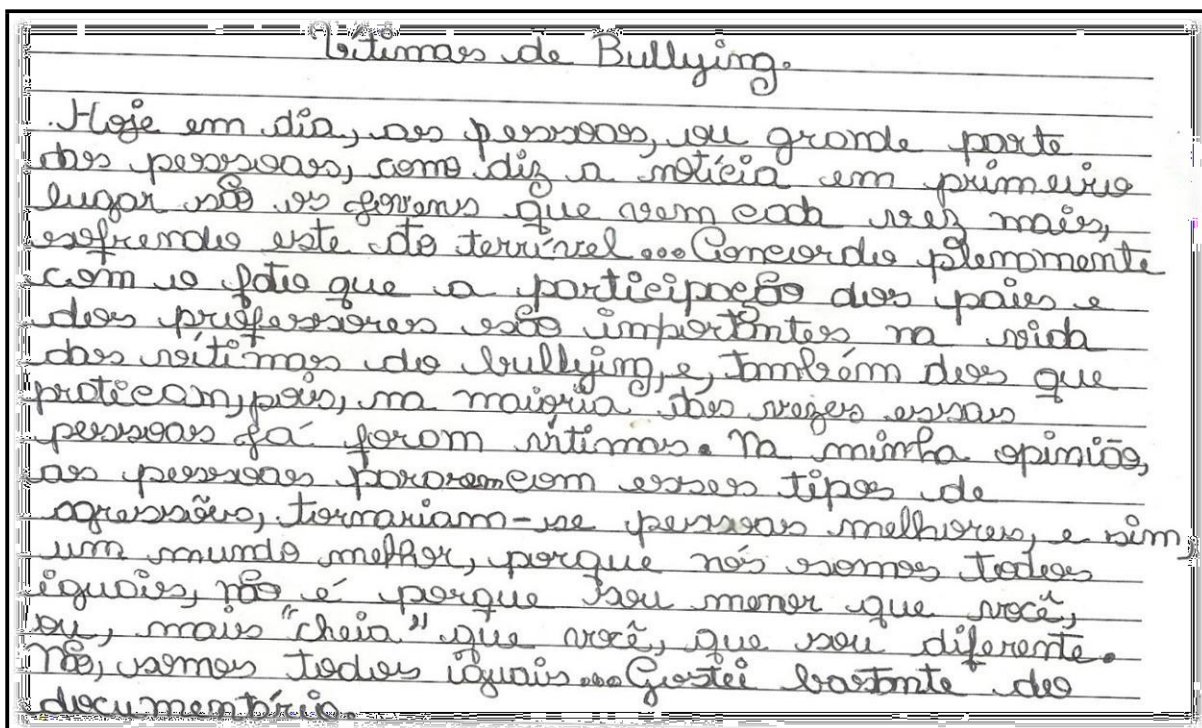 Vítimas de Bullying.
Hoje em dia, as pessoas, ou grande parte
das pessoas, como diz a notícia em primeiro
lugar são os jovens que vem cada vez mais,
sofrendo este ato terrível... Concordo plenamente
com o fato que a participação dos pais e
dos professores são importantes na vida
das vítimas do bullying, e, também dos que
praticam, pois, na maioria das vezes essas
pessoas já foram vítimas. Na minha opinião,
as pessoas pararem com esses tipos de
agressões, tornariam-se pessoas melhores, e sim,
um mundo melhor, porque nós somos todos
iguais, não é porque sou menor que você,
ou, mais "cheia" que você, que sou diferente.
Não, somos todos iguais... Gostei bastante do
documentário.